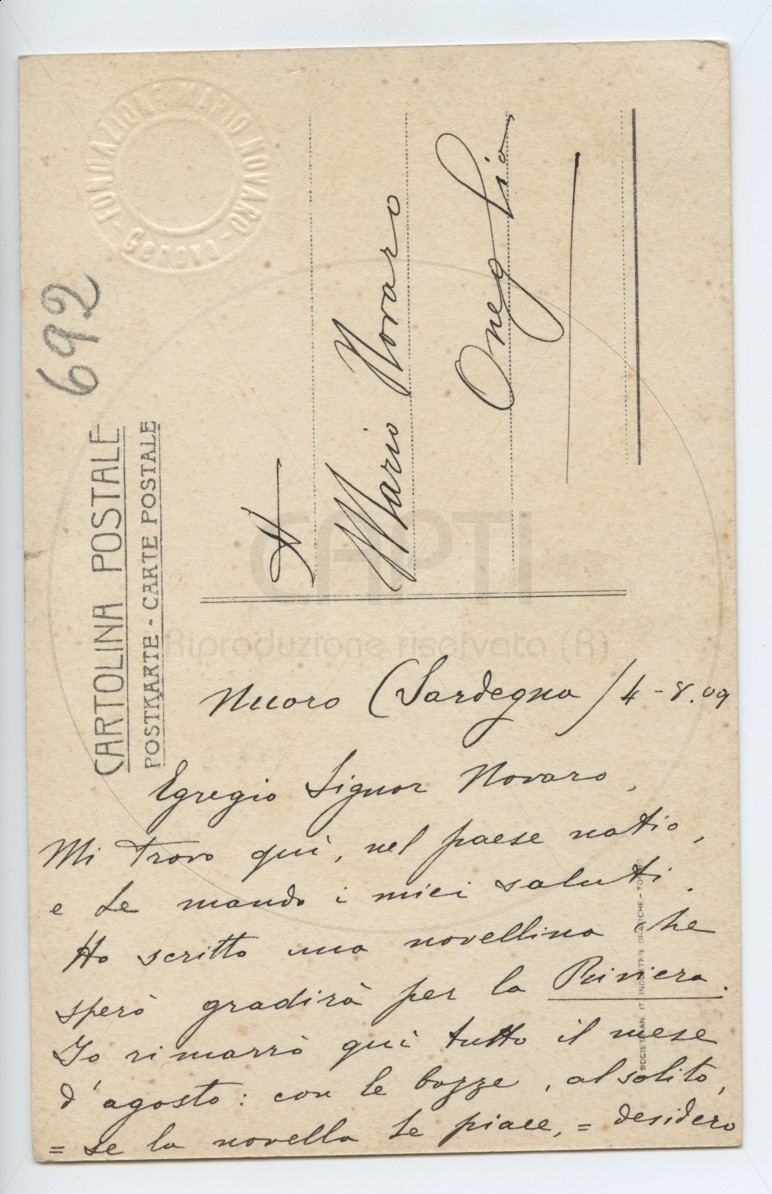 FONDAZIONE MARIO NOVARO - GENOVA -
692
CARTOLINA POSTALE
POSTKARTE - CARTE POSTALE
A
Mario Novaro
Oneglia
CAPTI
Riproduzione riservata (R)
Nuoro (Sardegna) 4-8.09
Egregio Signor Novaro,
Mi trovo qui, nel paese natio,
e Le mando i miei saluti.
Ho scritto una novellina che
sperò gradirà per la Riviera.
Io rimarrò qui tutto il mese
d'agosto: con le bozze, al solito,
= se la novella Le piace, = desidero